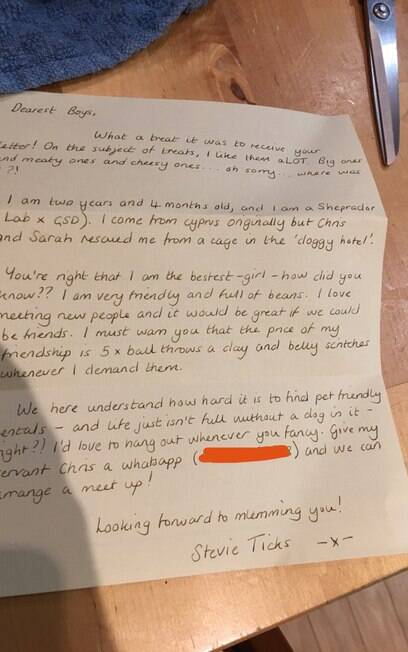 Dearest Boys,
What a treat it was to receive your
etter! On the subject of treats, I like them aLOT. Big ones
nd meaty ones and cheesy ones... oh sorry... where was
?!
I am two years and 4 months old, and I am a Sheprador
Lab x GSD). I come from cyprus originally but Chris
nd Sarah rescued me from a cage in the 'doggy hotel'.
You're right that I am the bestest-girl - how did you
know?? I am very friendly and full of beans. I love
meeting new people and it would be great if we could
be friends. I must warn you that the price of my
friendship is 5 x ball throws a day and belly scritches
whenever I demand them.
We here understand how hard it is to find pet friendly
entals - and life just isn't full without a dog in it -
ight?! I'd love to hang out whenever you fancy. Give my
ervant Chris a whatsapp ( ) and we can
rrange a meet up!
Looking forward to mlemming you!
Stevie Ticks -x-